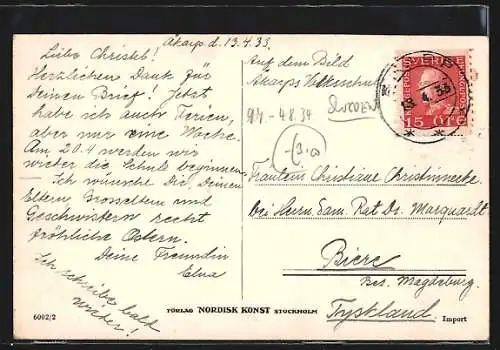 Åkarp d. 13.4.33.
Liebe Christel!
Herzlichen Dank für
Deinen Brief! Jetzt
habe ich auch Ferien,
aber nur eine Woche.
Am 20.4 werden wir
wieder die Schule beginnen.
Ich wünsche Dir, Deinen
Eltern, Grosseltern und
Geschwistern recht
fröhliche Ostern.
Deine Freundin
Elna
Ich schreibe bald
wieder!
Auf dem Bild
Åkarps
SVERIGE
15 ÖRE
13.4.33
Fräulein Christiane
bei Herrn San. Rat Dr. Marquardt
Biere
Bez. Magdeburg.
Tyskland.
6002/2
FÖRLAG NORDISK KONST STOCKHOLM
Import